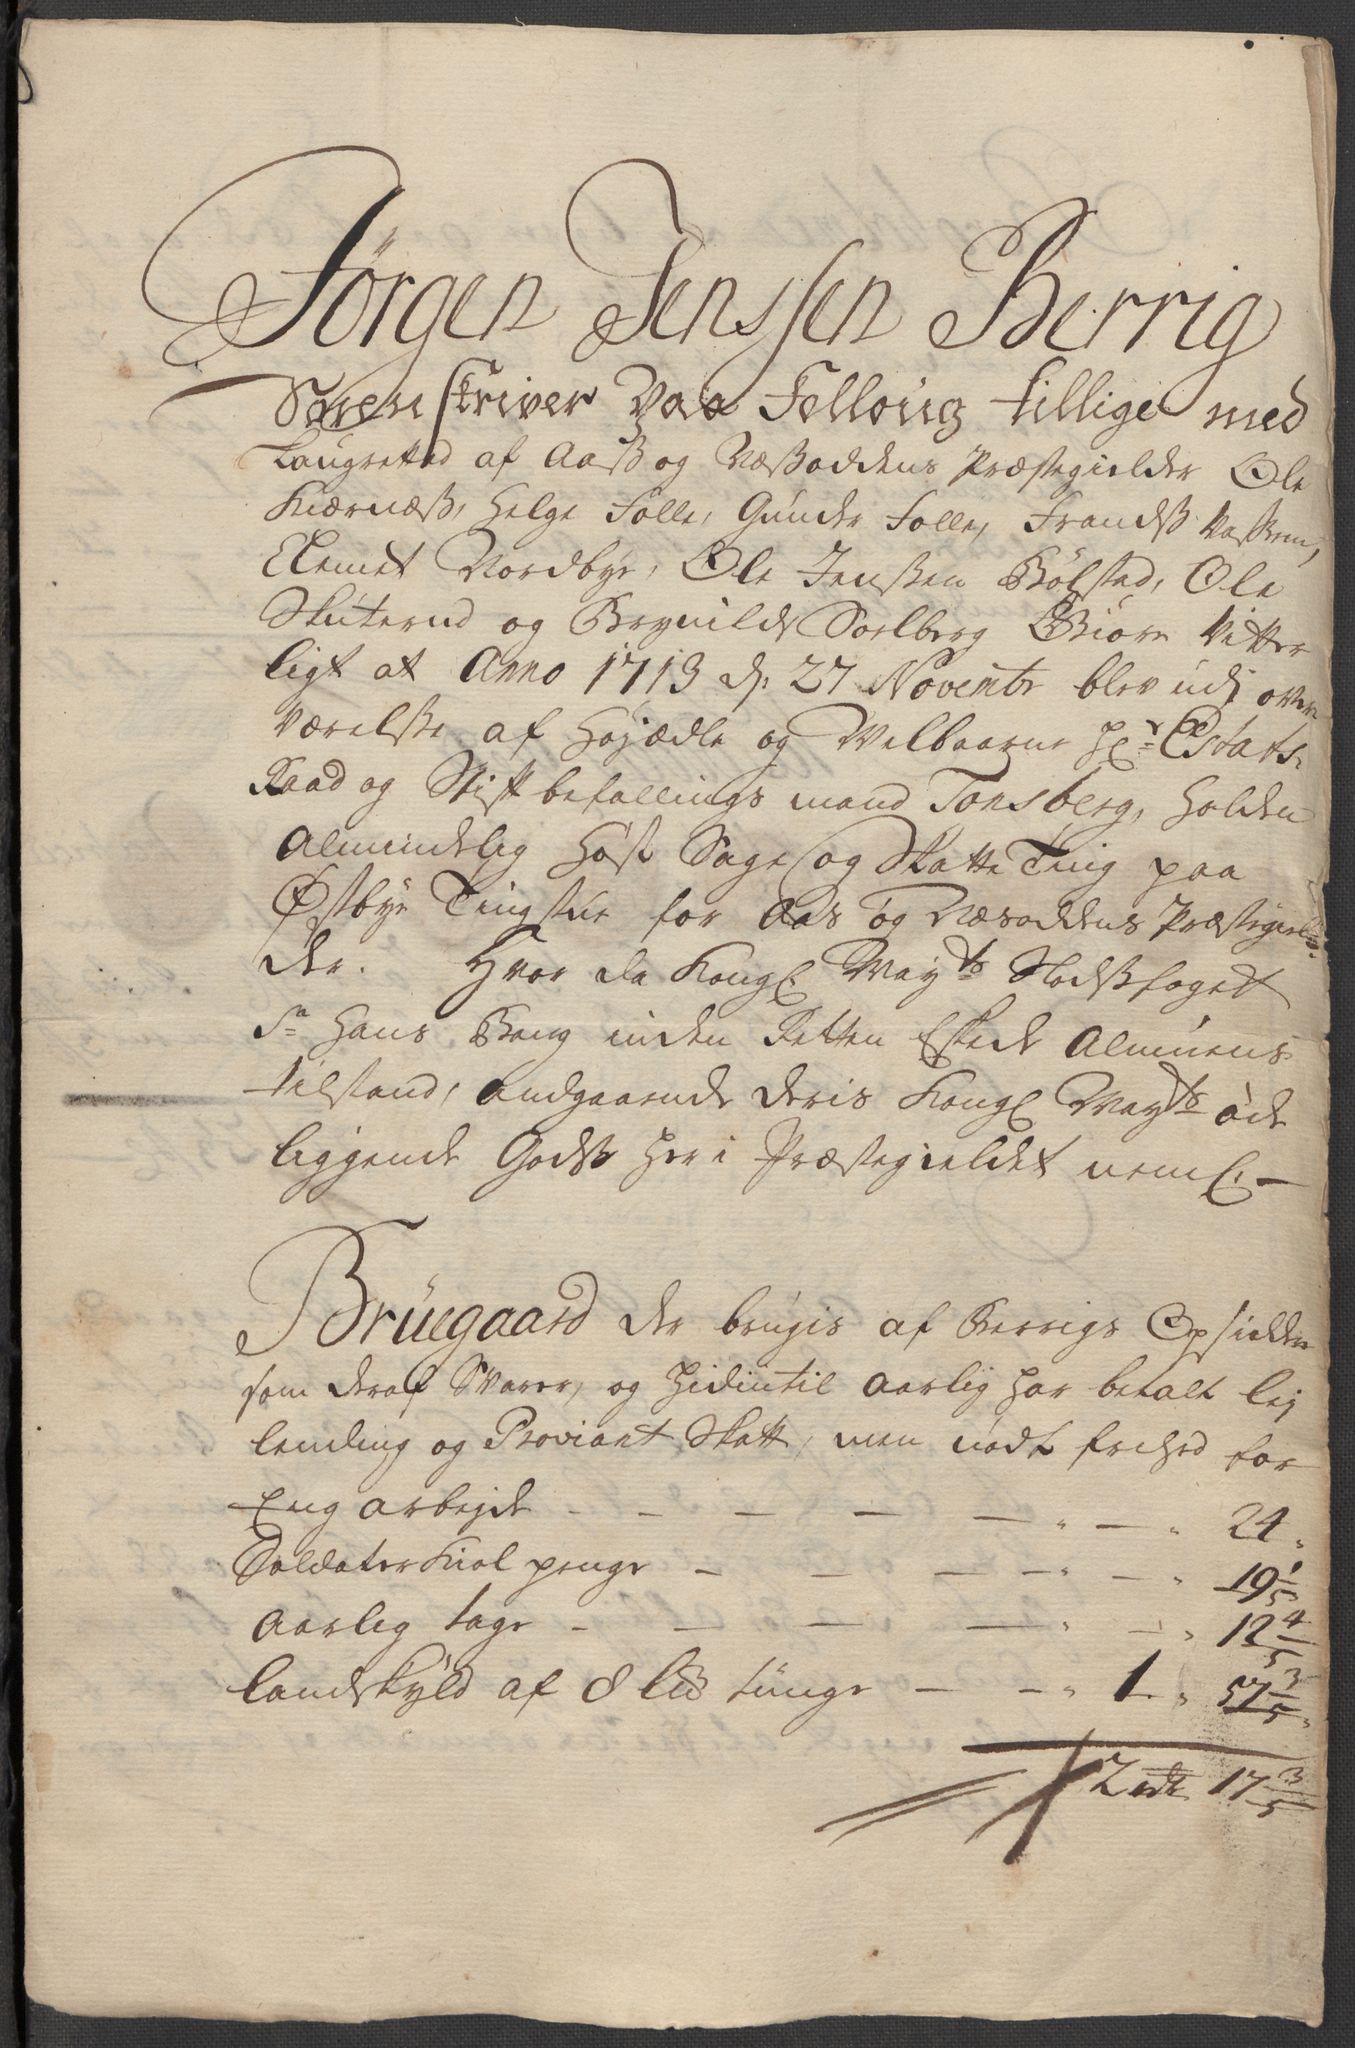 Jørgen Jenssen Berrig
Sorenskriver paa Folloug tillige med
Laugretted af Aass og Næssoddens Præstegielder Ole
Kiærnæss, Helge Folle, Gunder Folle, Frandss
Clemet Nordbye, Ole Jenssen Bølstad, Ole
Skuterud og Brynild Solberg Giøre Vitter
ligt at Anno 1713 d. 27 Novembr blev udj over
værelsse af Højædle og Velbaarne Hr. Estats
Raad og Stiftbefallings mand Tonsberg, Holden
Almindelig Høst Sage og Skatte Ting paa
Østbye Tingstue for Aas og Næsoddens Præstegiel
der. Hvor da Kongl. Mayts Slodssfoget
Sr Hans Bang inden Retten Eskede Alminens
tilstand, andgaaende deris Kongl Mayts øde
liggende Godss her i Præstegieldet neml. —
Bruegaard der brugis af Berrigs Opsidder
som deraf Svarer, og hidintil aarlig har betalt lej
lending og Proviant Skatt, men nødt frihed for
Eng arbejde — — — — — " — " 24 "
Soldater Kiol penge — — — — " — " 19 1/5
Aarlig tage — — — — " — " 12 4/5
Landskyld af 8 lis tunge — — " 1 " 57 3/5 "
2 rdr 17 3/5